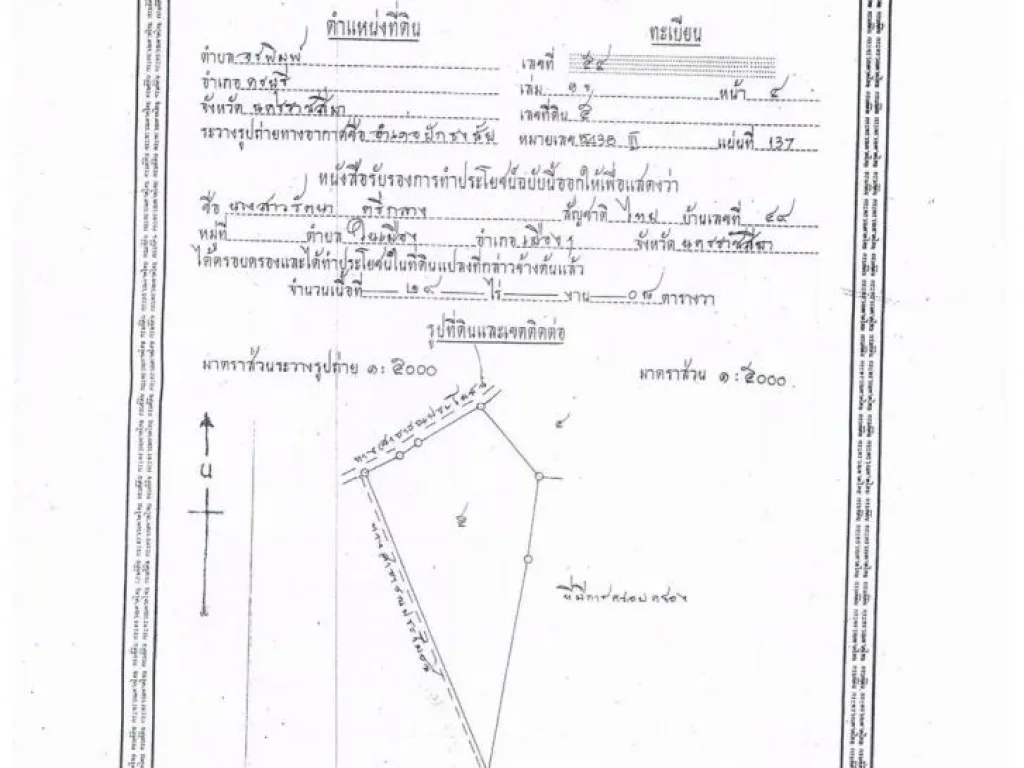 ตำแหน่งที่ดิน ทะเบียน
ตำบล จรเข้หิน เลขที่ ๕๔
อำเภอ ครบุรี เล่ม ๑ ข หน้า ๔
จังหวัด นครราชสีมา เลขที่ดิน ๕
ระวางรูปถ่ายทางอากาศชื่อ อำเภอปักธงชัย หมายเลข 5438 III แผ่นที่ 137
หนังสือรับรองการทำประโยชน์ฉบับนี้ออกให้เพื่อแสดงว่า
ชื่อ นางสาวรัตนา ตรีกลาง สัญชาติ ไทย บ้านเลขที่ ๔๙
หมู่ที่ ตำบล ในเมือง อำเภอ เมือง ฯ จังหวัด นครราชสีมา
ได้ครอบครองและได้ทำประโยชน์ในที่ดินแปลงที่กล่าวข้างต้นแล้ว
จำนวนเนื้อที่ ๒๙ ไร่ งาน ๐๗ ตารางวา
รูปที่ดินและเขตติดต่อ
มาตราส่วนระวางรูปถ่าย ๑ : ๕๐๐๐ มาตราส่วน ๑ : ๕๐๐๐
ทางสาธารณประโยชน์
๔
น
๕
ทางสาธารณประโยชน์
ที่มีการครอบครอง